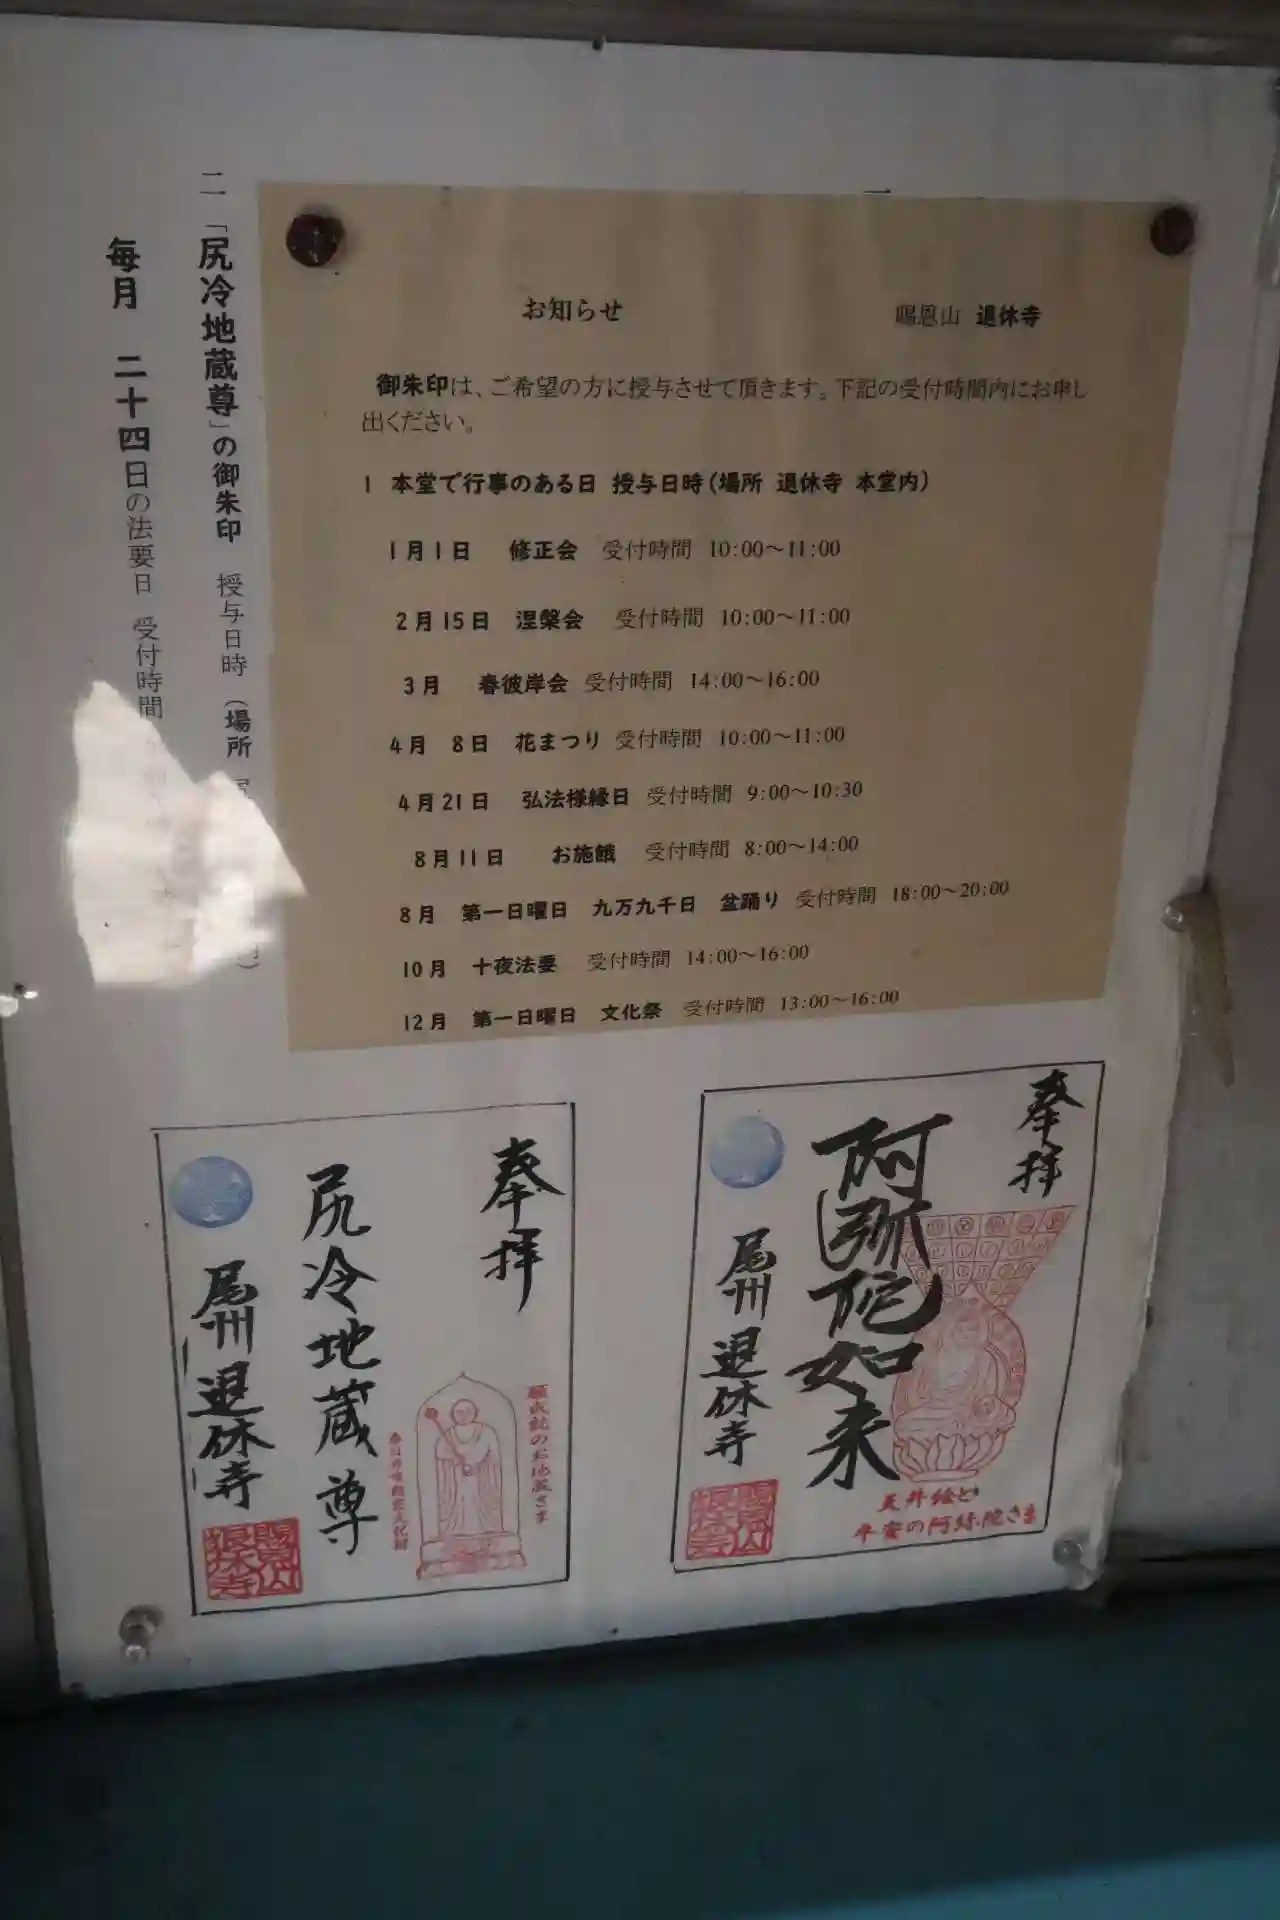 お知らせ
賜恩山 退休寺
御朱印は、ご希望の方に授与させて頂きます。下記の受付時間内にお申し
出ください。
1 本堂で行事のある日 授与日時(場所 退休寺 本堂内)
1月1日 修正会 受付時間 10:00～11:00
2月15日 涅槃会 受付時間 10:00～11:00
3月 春彼岸会 受付時間 14:00～16:00
4月 8日 花まつり 受付時間 10:00～11:00
4月21日 弘法様縁日 受付時間 9:00～10:30
8月11日 お施餓 受付時間 8:00～14:00
8月 第一日曜日 九万九千日 盆踊り 受付時間 18:00～20:00
10月 十夜法要 受付時間 14:00～16:00
12月 第一日曜日 文化祭 受付時間 13:00～16:00
二 「尻冷地蔵尊」の御朱印 授与日時 (場所
毎月 二十四日の法要日 受付時間
奉拝
阿弥陀如来
尾州 退休寺
天井絵と
平安の阿弥陀さま
奉拝
尻冷地蔵尊
尾州 退休寺
願成就のお地蔵さま
春日井市指定文化財